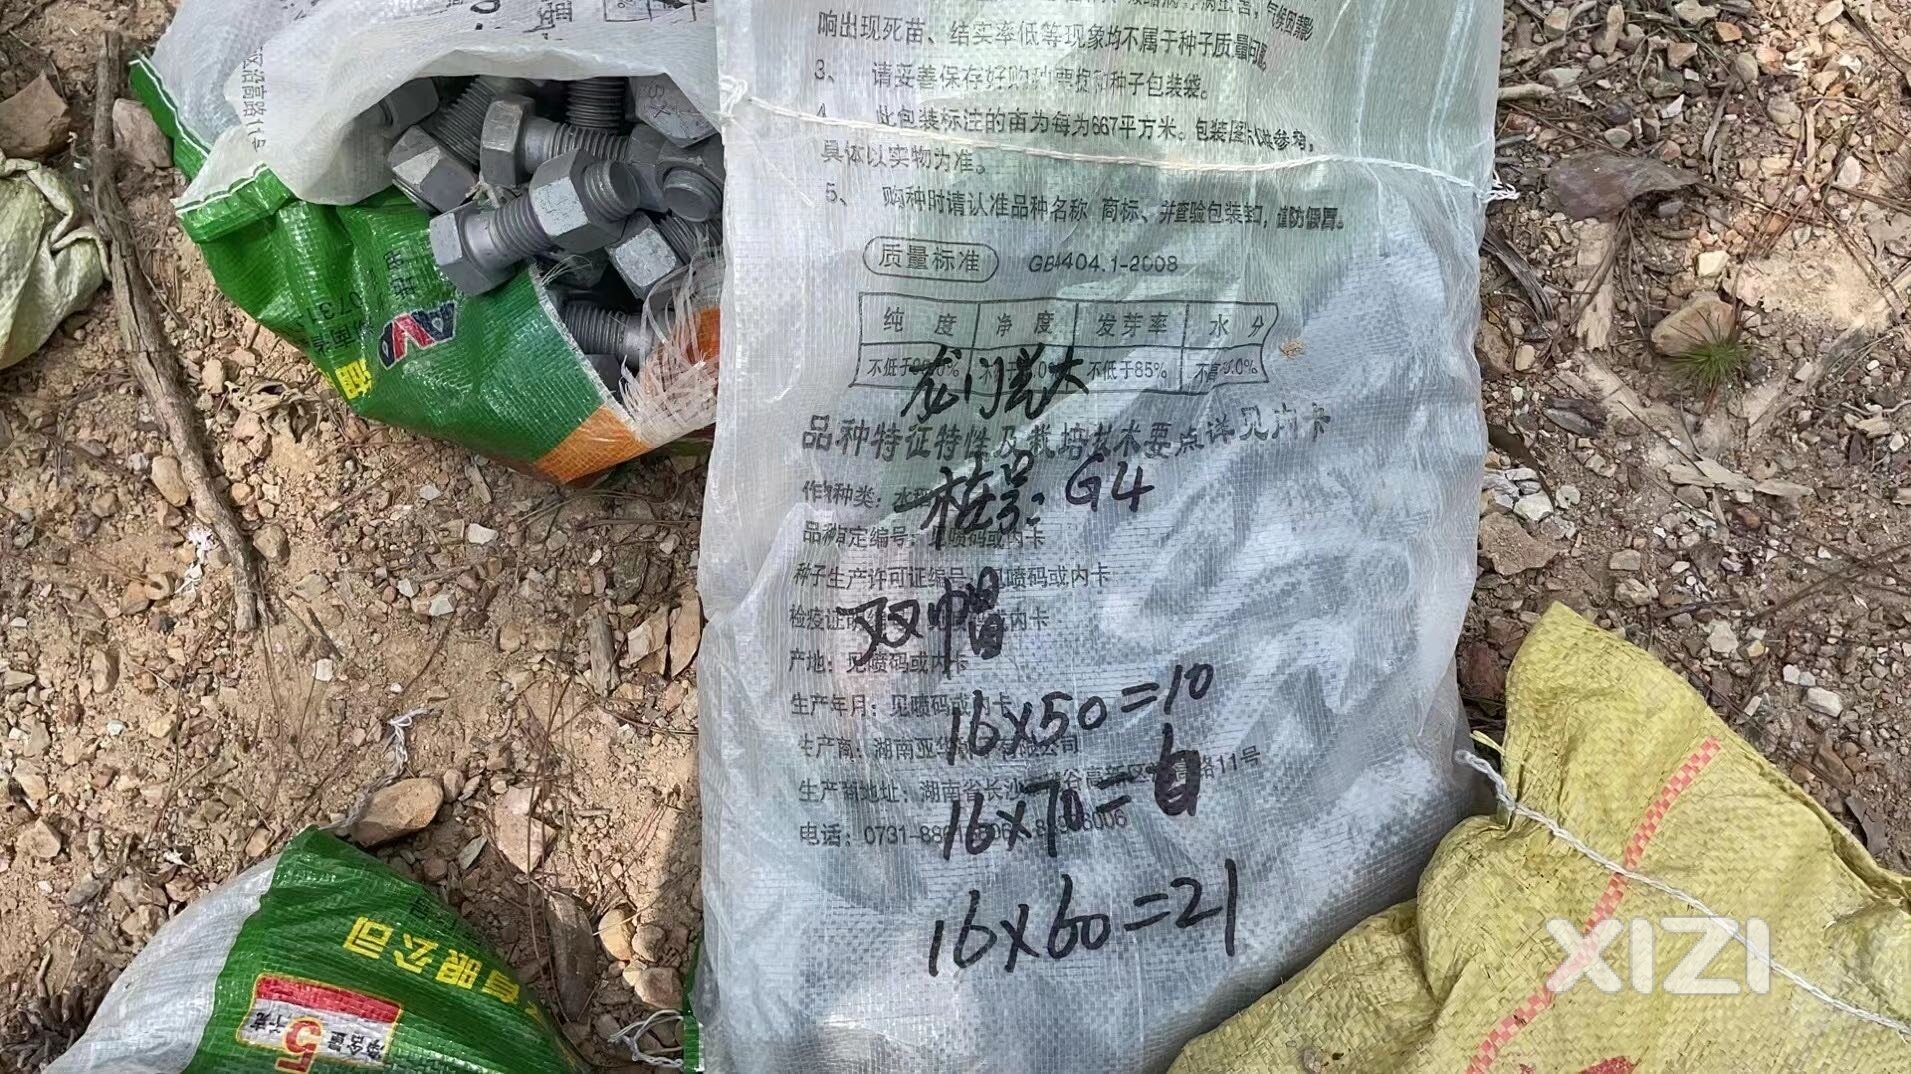 响出现死苗、结实率低等现象均不属于种子质量问题。
3、 请妥善保存好购种票据和种子包装袋。
4、 此包装标注的亩为每为667平方米。包装图片仅供参考，
具体以实物为准。
5、 购种时请认准品种名称 商标、并查验包装封口，谨防假冒。
质量标准 GB4404.1-2008
纯度 净度 发芽率 水分
不低于 不低于85%
龙门
品种特征特性及栽培技术要点详见内卡
桩号：G4
作物种类：水
品种审定编号：见喷码或内卡
种子生产许可证编号 见喷码或内卡
双帽
检疫证 或内卡
产地：见喷码或内卡
生产年月：见喷码或内卡
16×50=10
生产商：湖南亚华 有限公司
生产商地址：湖南省长沙 谷高新区 路11号
16×70=
电话：0731-88 6006
16×60=21
有限公司
5
XIZI